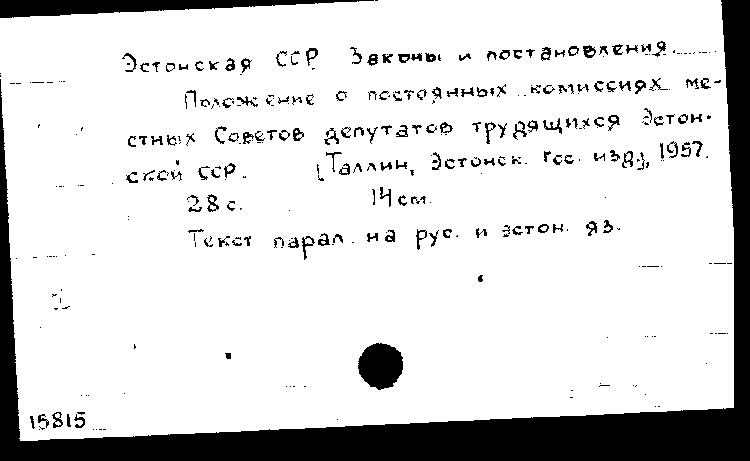 Эстонская ССР Законы и постановления.
Положение о постоянных комиссиях ме-
стных Советов депутатов трудящихся Эстон-
ской ССР. [Таллин, Эстонск. гос. изд.], 1957.
28 с. 14 см.
Текст парал. на рус. и эстон. яз.
15815